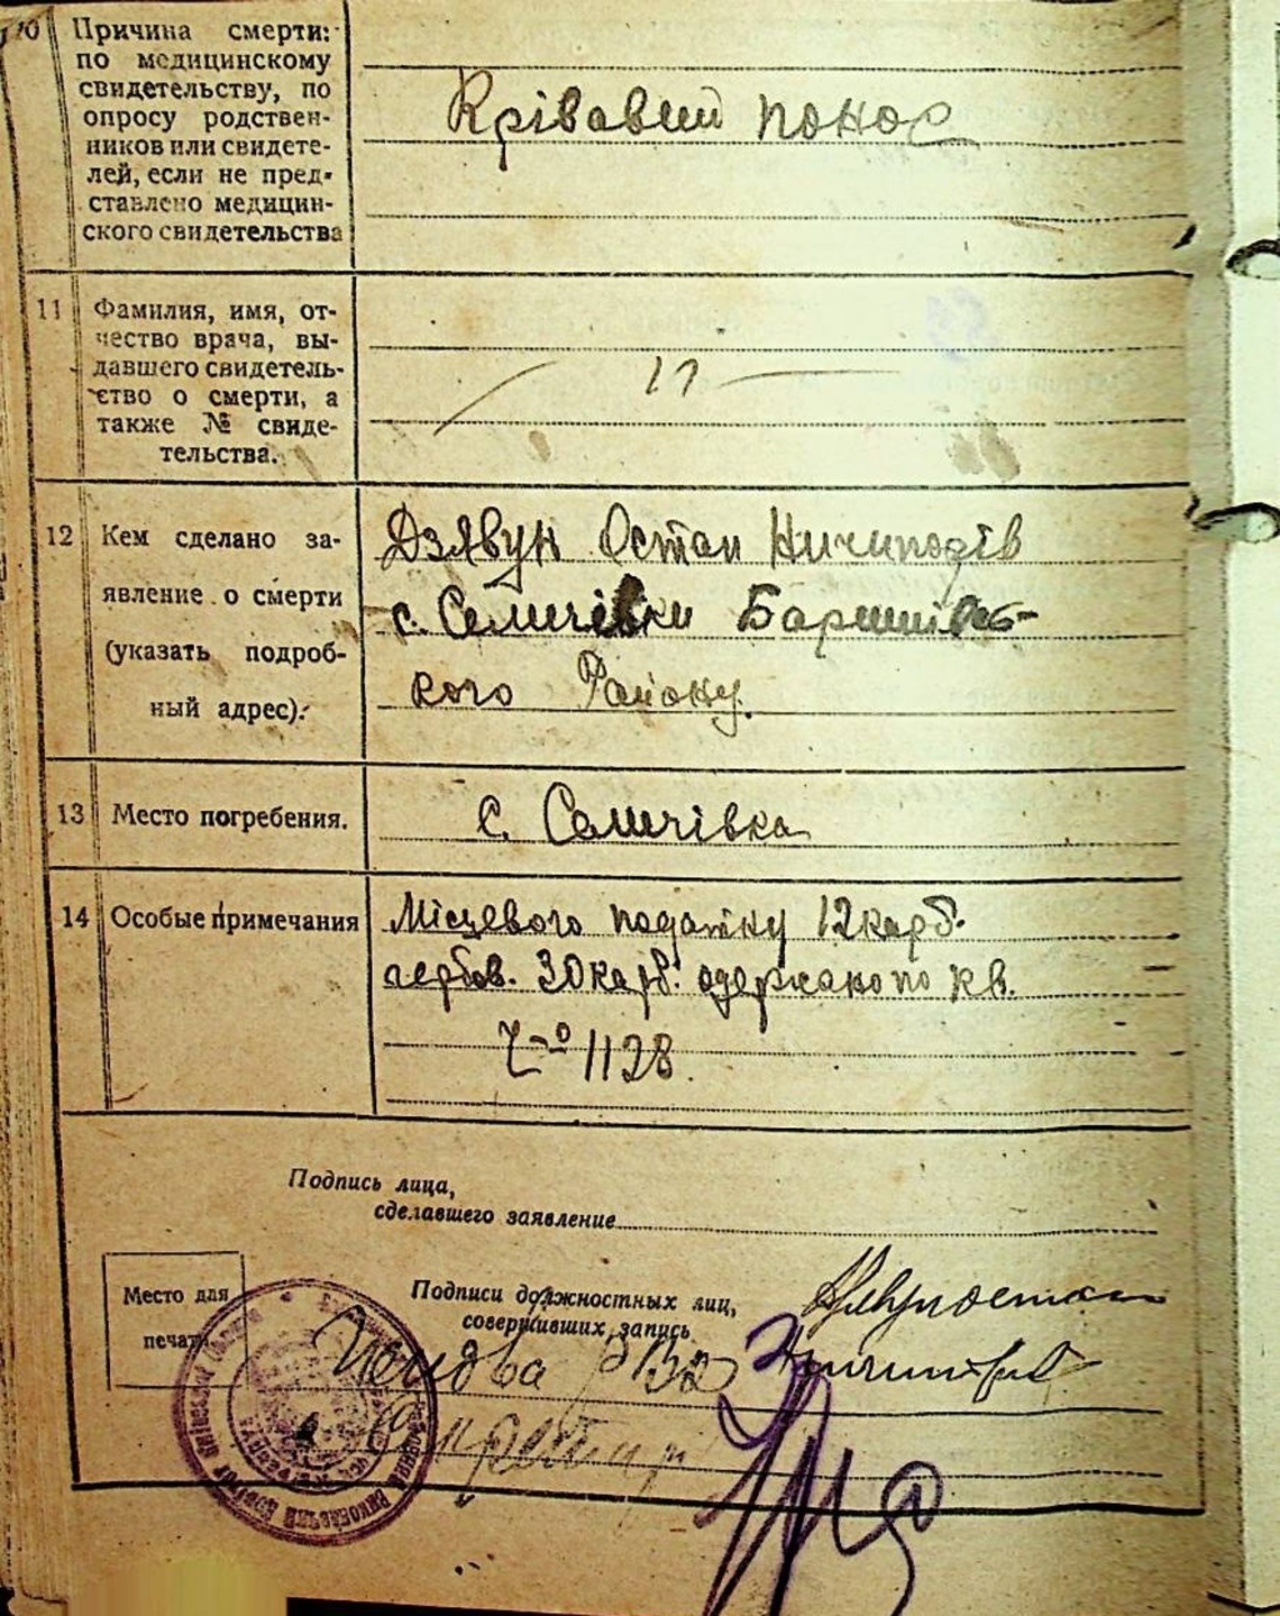 10 Причина смерти:
по медицинскому
свидетельству, по
опросу родствен-
ников или свидете-
лей, если не пред-
ставлено медицин-
ского свидетельства
Крівавий понос
11 Фамилия, имя, от-
чество врача, вы-
давшего свидетель-
ство о смерти, а
также № свиде-
тельства.
12 Кем сделано за-
явление о смерти
(указать подроб-
ный адрес).
Дзявун Остап Ничипорів
с. Селичівки Баришівсь-
кого Району.
13 Место погребения.
с. Селичівка
14 Особые примечания
Місцевого податку 12 карб.
гербов. 30 карб. одержано по кв.
Ч-о 1128.
Подпись лица,
сделавшего заявление
Место для
печати
Подписи должностных лиц,
совершивших запись
Голова
Секретар